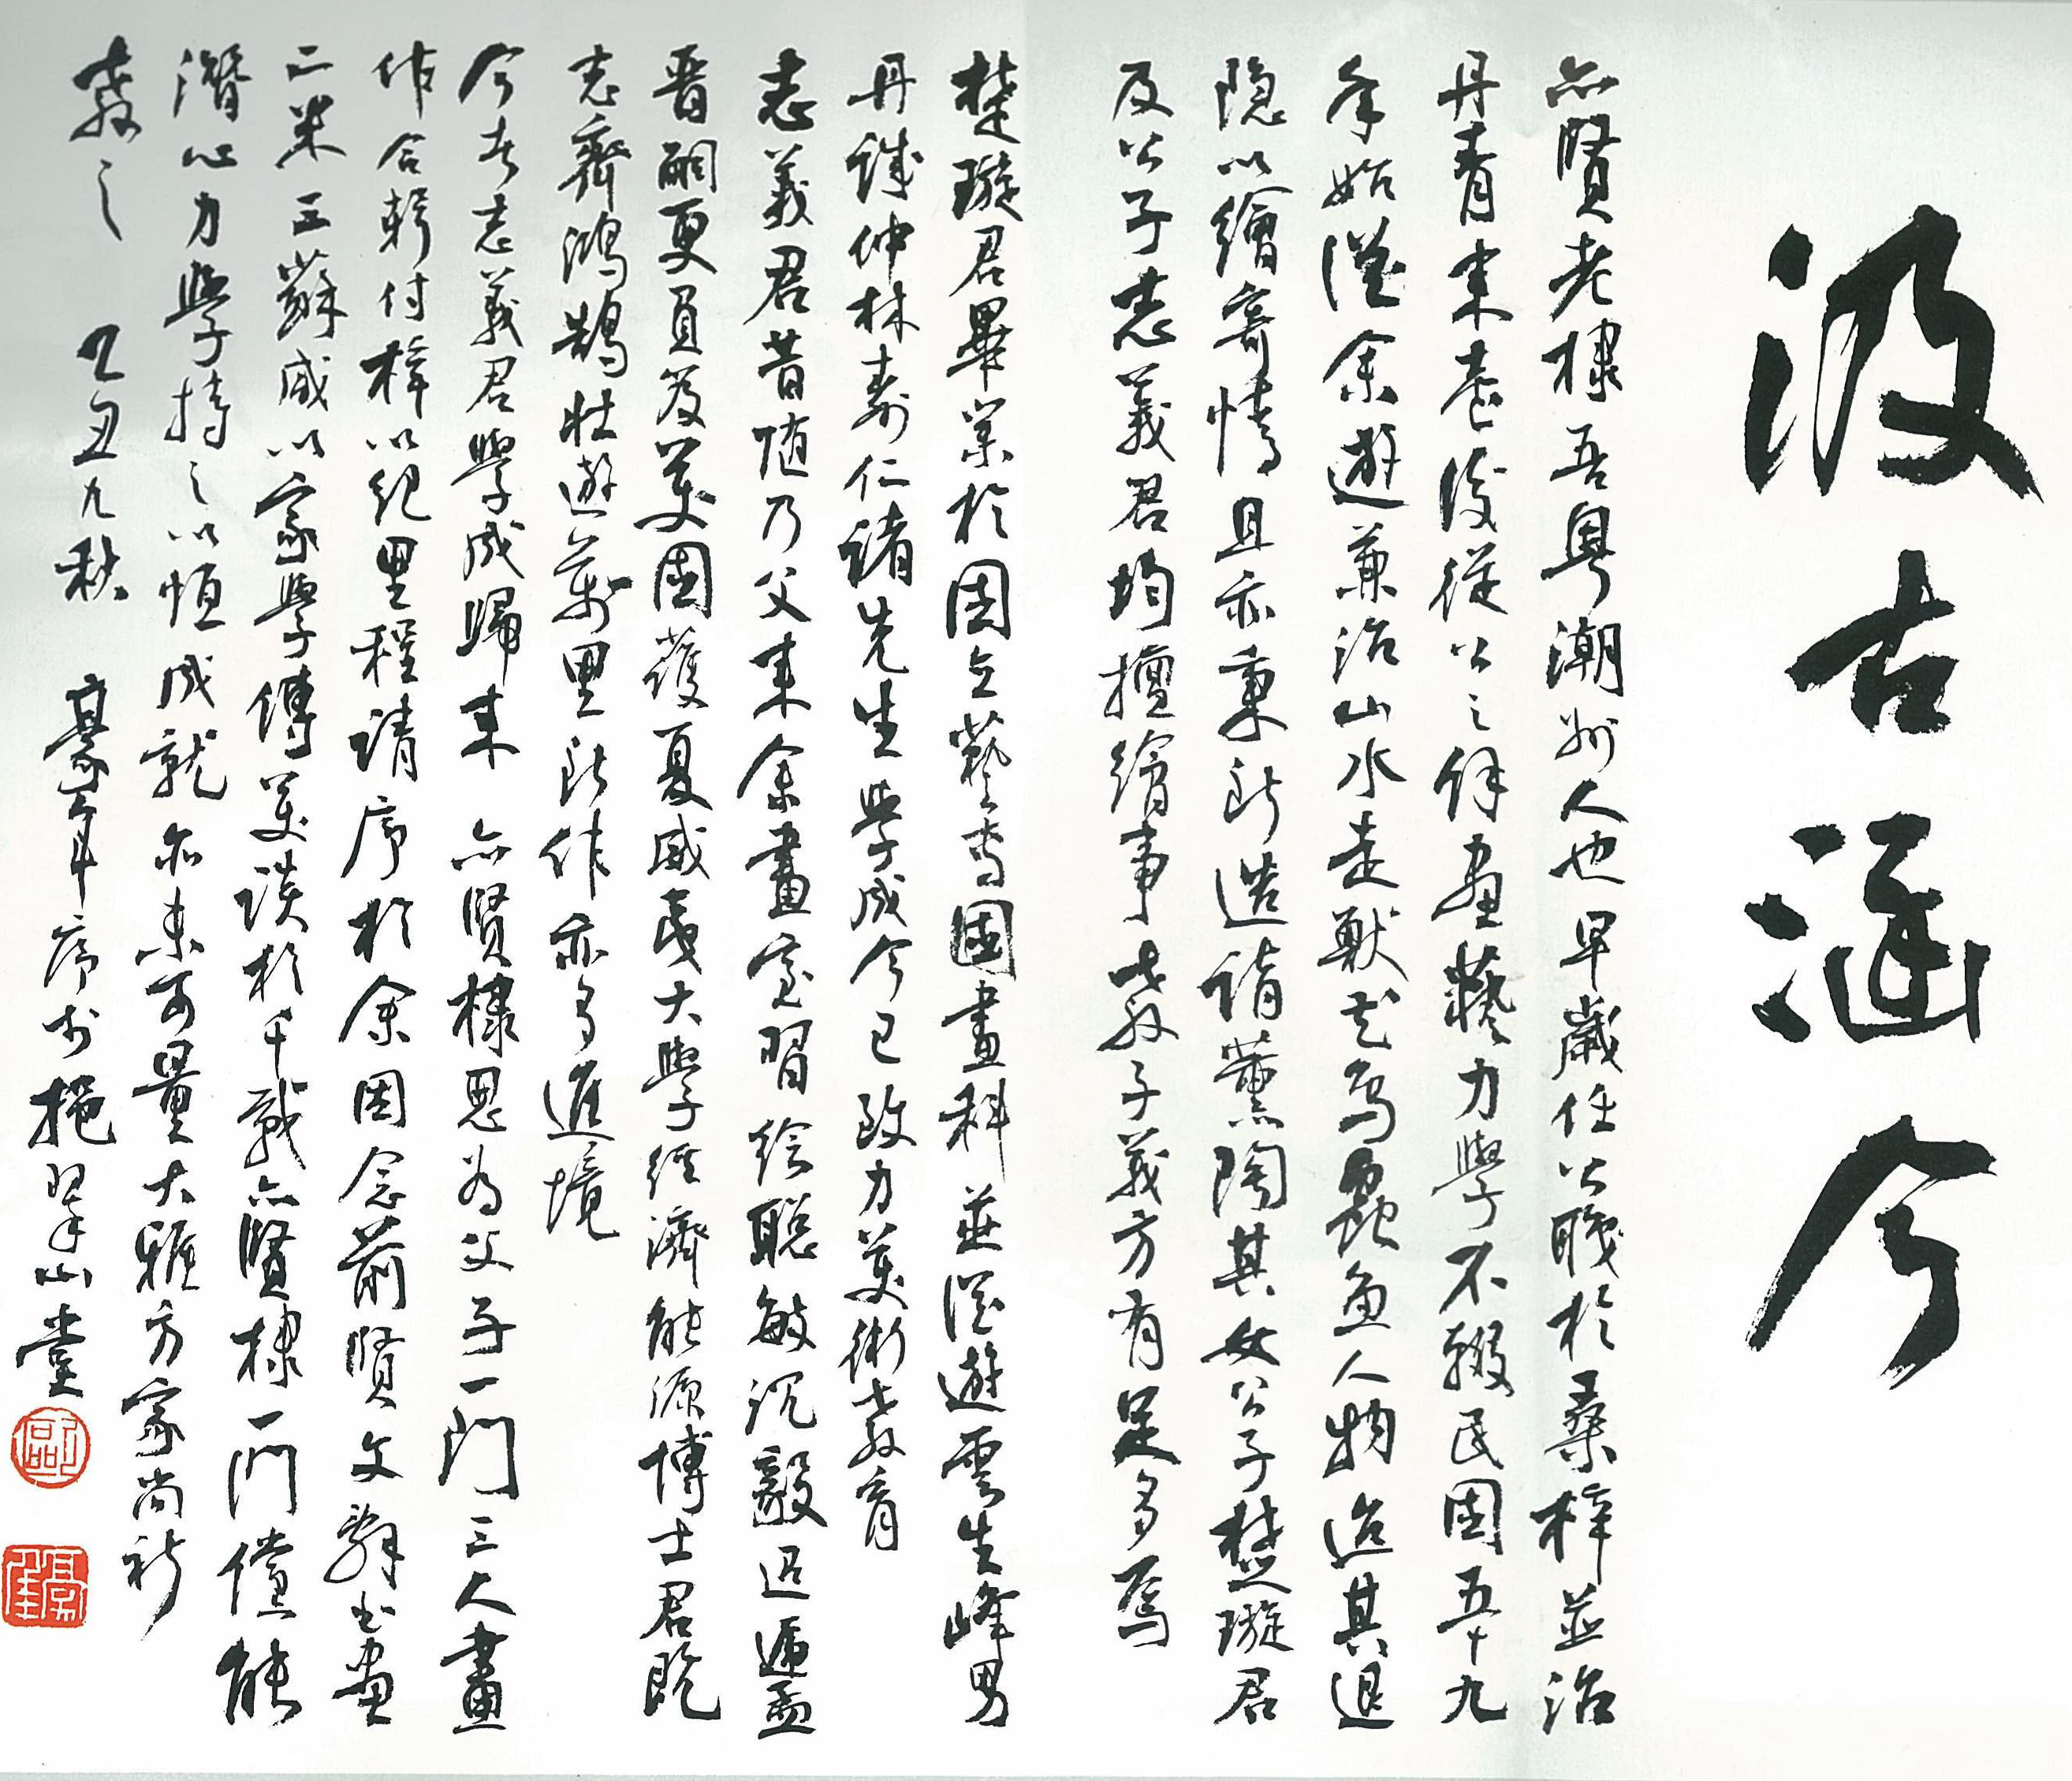 汲古涵今
亦賢老棣吾粵潮州人也早歲任公職於桑梓並治
丹青來臺後從公之餘畫藝力學不輟民國五十九
年始從余遊兼治山水走獸花鳥蟲魚人物迨其退
隐以繪寄情且亦秉所造詣薰陶其女公子楚璇君
及公子志義君均擅繪事教子義方有足多焉
楚璇君畢業於国立藝專國畫科並從遊雲生峰男
丹誠仲林壽仁諸先生學成今已致力美術教育
志義君昔随乃父来余畫室習绘聪敏沉毅迢遞孟
晋嗣更負笈美國護夏威夷大學经濟能源博士君既
志齊鴻鵠壯遊萬里所作亦多進境
今者志義君學成歸来亦賢棣思为父子一門三人畫
作合輯付梓以纪里程请序於余因念前賢文辭書畫
二米三蘇咸以家學傳美談於千載亦賢棣一門儻能
潛心力學持之以恒成就亦未可量大雅方家尚祈
教之　乙丑九秋　豪年序於挹翠山堂